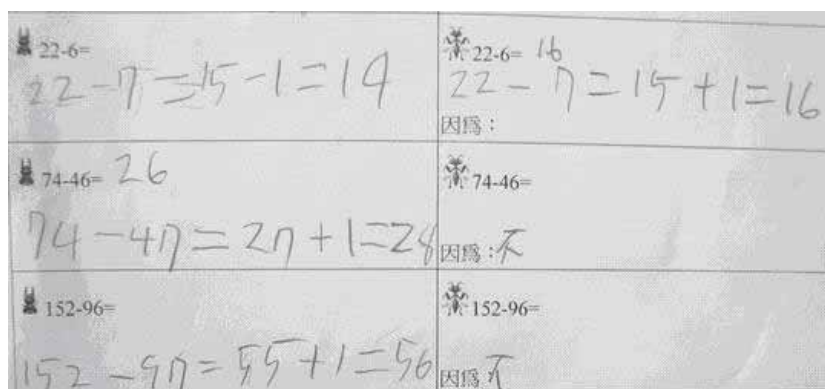 22-6=
22-7=15-1=14
22-6= 16
22-7=15+1=16
因爲：
74-46= 26
74-47=27+1=28
74-46=
因爲：不
152-96=
152-97=55+1=56
152-96=
因爲 不